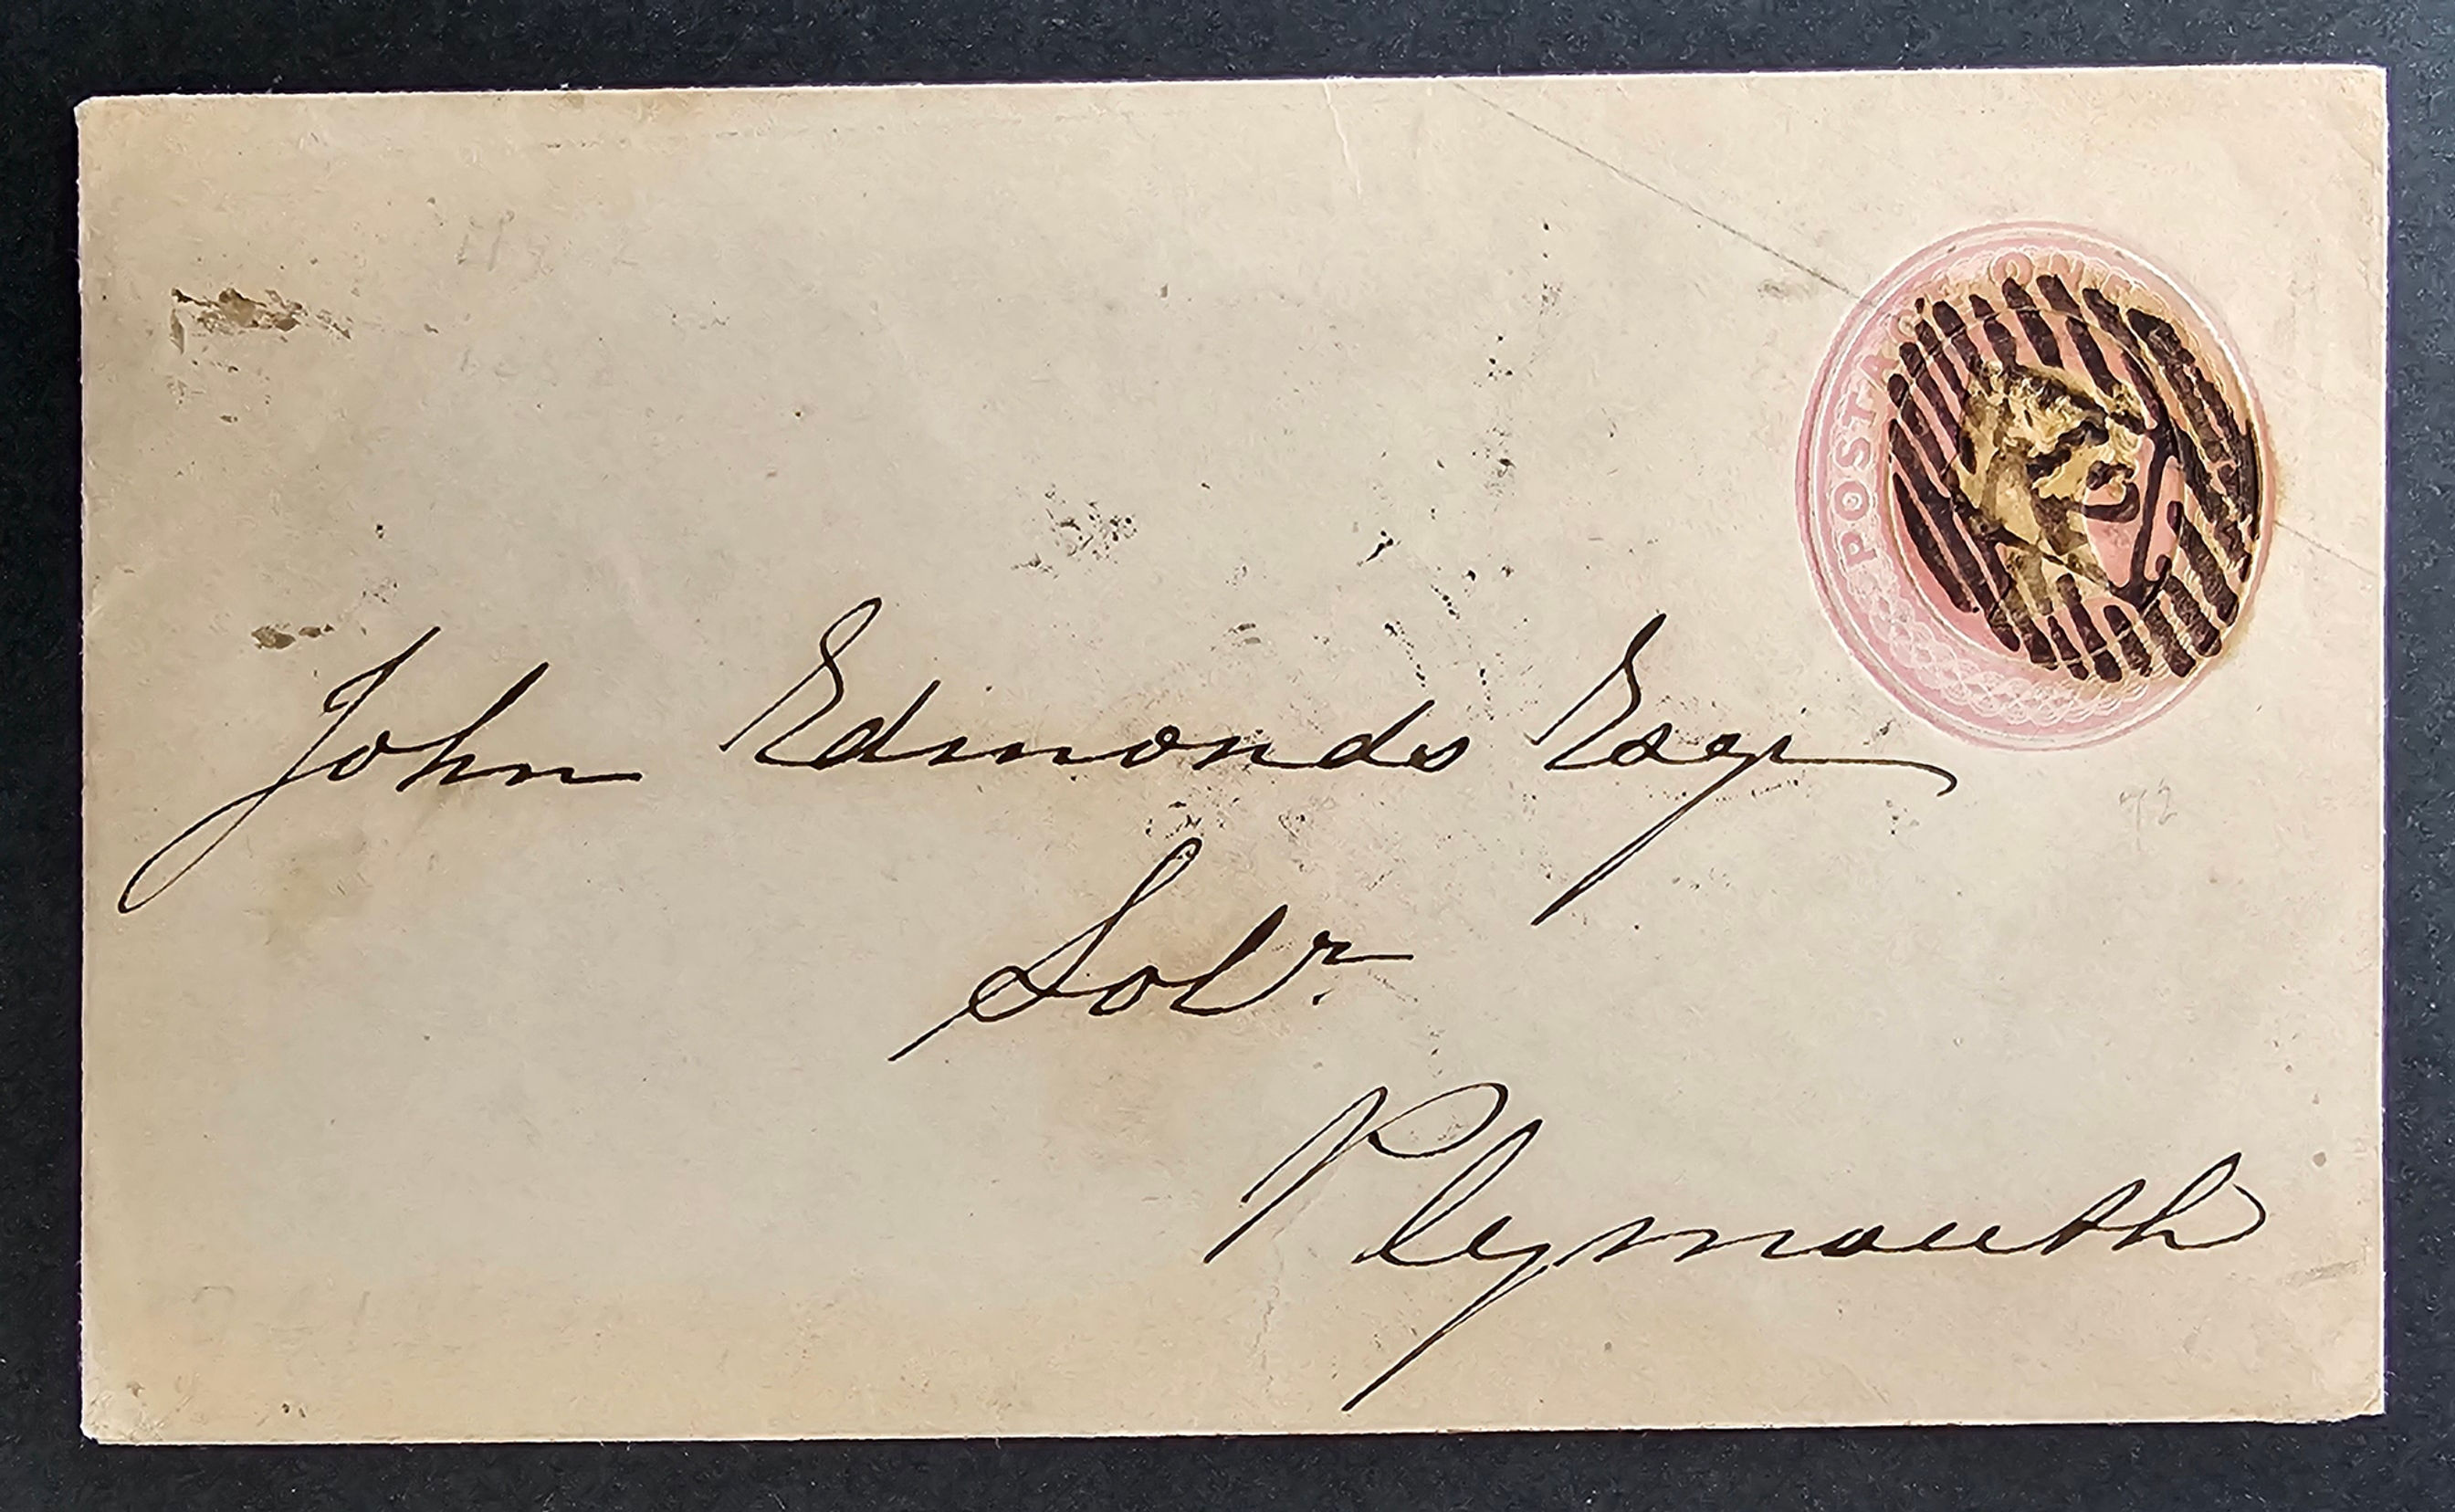 POSTAGE ON
John Edmonds Esqr
Solr.
Plymouth
72